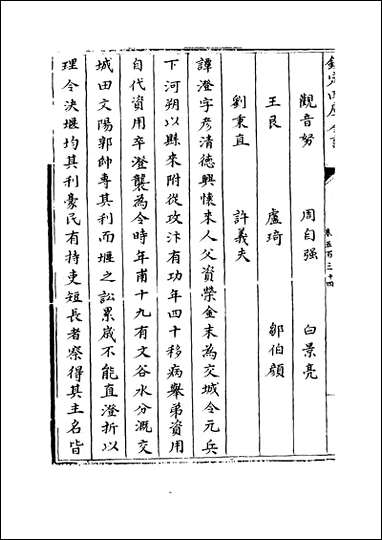 欽定四庫全書
卷五百三十四
觀音努　周自强　白景亮
王艮　盧琦　鄒伯顔
劉秉直　許義夫
譚澄字彦清徳興懷來人父資榮金末為交城令元兵
下河朔以縣來附從攻汴有功年四十移病舉弟資用
自代資用卒澄襲為令時年甫十九有文谷水分溉交
城田文陽郭帥専其利而堰之訟累歲不能直澄折以
理令決堰均其利豪民有持吏短長者察得其主名皆